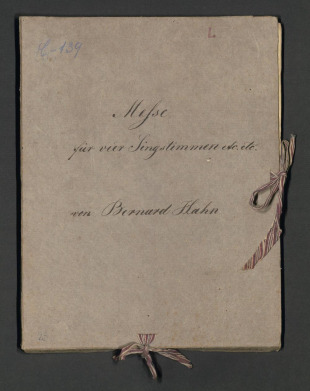 C-139
L.
Messe
für vier Singstimmen etc. etc.
von Bernard Hahn